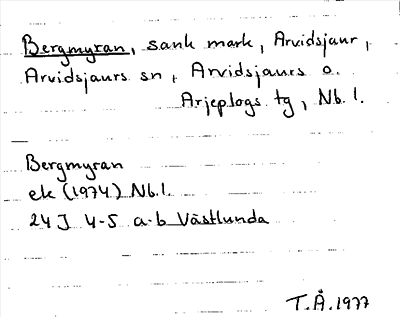 Bergmyran, sank mark, Arvidsjaur,
Arvidsjaurs sn, Arvidsjaurs o.
Arjeplogs tg, Nb. l.
Bergmyran
ek (1974) Nb.l.
24J 4-5 a-b Västlunda
T.Å.1977